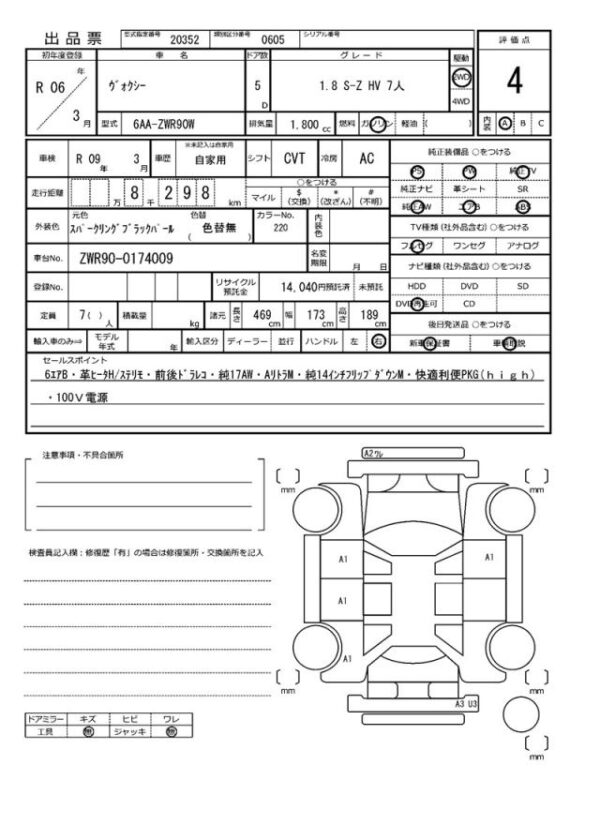 出品票 型式指定番号 20352 類別区分番号 0605 シリアル番号
評価点
4
内装 A B C
初年度登録 車名 ドア数 グレード 駆動
R 06 年 3 月
ヴォクシー 5 D 1.8 S-Z HV 7人 2WD 4WD
型式 6AA-ZWR90W 排気量 1,800 cc 燃料 ガソリン 軽油 ( )
車検 R 09 年 3 月 車歴 ※未記入は自家用 自家用 シフト CVT 冷房 AC
走行距離 万 8 千 2 9 8 km ○をつける マイル $ (交換) * (改ざん) # (不明)
外装色 元色 スパークリングブラックパール 色替 ( 色替無 ) カラーNo. 220 内装色
車台No. ZWR90-0174009 名変期限 月 日
登録No. リサイクル預託金 14,040円預託済 未預託
定員 7( ) 人 積載量 kg 諸元 長さ 469 cm 幅 173 cm 高さ 189 cm
輸入車のみ⇒ モデル年式 年 輸入区分 ディーラー 並行 ハンドル 左 右
純正装備品 ○をつける
PS PW 純正TV
純正ナビ 革シート SR
純正AW エアB ABS
TV種類(社外品含む) ○をつける
フルセグ ワンセグ アナログ
ナビ種類(社外品含む) ○をつける
HDD DVD SD
DVD再生可 CD
後日発送品 ○をつける
新車保証書 車輌取説
セールスポイント
6エアB・革ヒータH/ステリモ・前後ドラレコ・純17AW・AリトラM・純14インチフリップダウンM・快適利便PKG(high)
・100V電源
注意事項・不具合箇所
検査員記入欄:修復歴「有」の場合は修復箇所・交換箇所を記入
ドアミラー キズ ヒビ ワレ
工具 無 ジャッキ 無
A2ワレ
mm mm
A1 A1
A1
A1
mm mm
A3 U3
mm